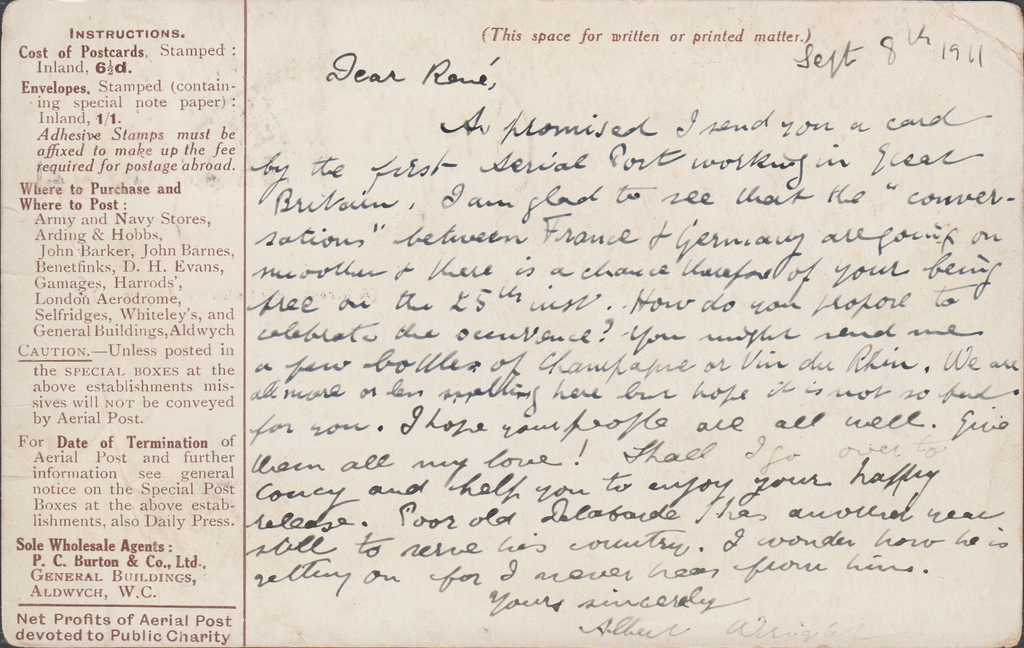 INSTRUCTIONS.
Cost of Postcards, Stamped :
Inland, 6½d.
Envelopes, Stamped (contain-
ing special note paper) :
Inland, 1/1.
Adhesive Stamps must be
affixed to make up the fee
required for postage abroad.
Where to Purchase and
Where to Post :
Army and Navy Stores,
Arding & Hobbs,
John Barker, John Barnes,
Benetfinks, D. H. Evans,
Gamages, Harrods',
London Aerodrome,
Selfridges, Whiteley's, and
General Buildings, Aldwych
CAUTION.—Unless posted in
the SPECIAL BOXES at the
above establishments mis-
sives will NOT be conveyed
by Aerial Post.
For Date of Termination of
Aerial Post and further
information see general
notice on the Special Post
Boxes at the above estab-
lishments, also Daily Press.
Sole Wholesale Agents :
P. C. Burton & Co., Ltd.,
GENERAL BUILDINGS,
ALDWYCH, W.C.
Net Profits of Aerial Post
devoted to Public Charity
(This space for written or printed matter.)
Sept 8th 1911
Dear René,
As promised I send you a card
by the first Aerial Post working in Great
Britain. I am glad to see that the "conver-
sations" between France & Germany are going on
smoother & there is a chance therefore of your being
free on the 25th inst. How do you propose to
celebrate the occurence? You might send me
a few bottles of Champagne or Vin du Rhin. We are
all more or less melting here but hope it is not so bad
for you. I hope your people are all well. Give
them all my love! Shall I go over to
Coucy and help you to enjoy your happy
release. Poor old Delabarde has another year
still to serve his country. I wonder how he is
getting on for I never hear from him.
Yours sincerely
Albert Wright